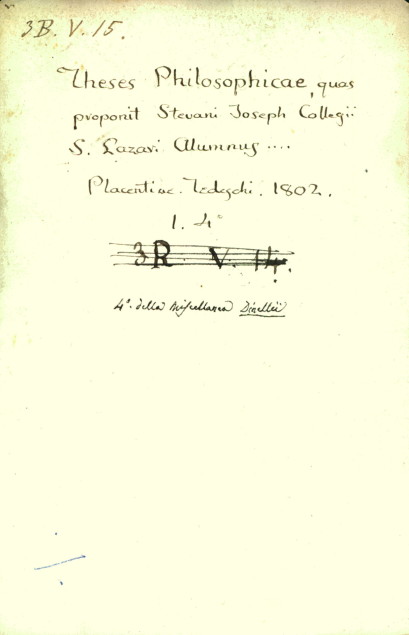 3B. V. 15.
Theses Philosophicae, quas
proponit Stevani Joseph Collegii
S. Lazari Alumnus ....
Placentiae. Tedeschi. 1802.
1. 4°
3R V. 14.
4°. della Miscellanea